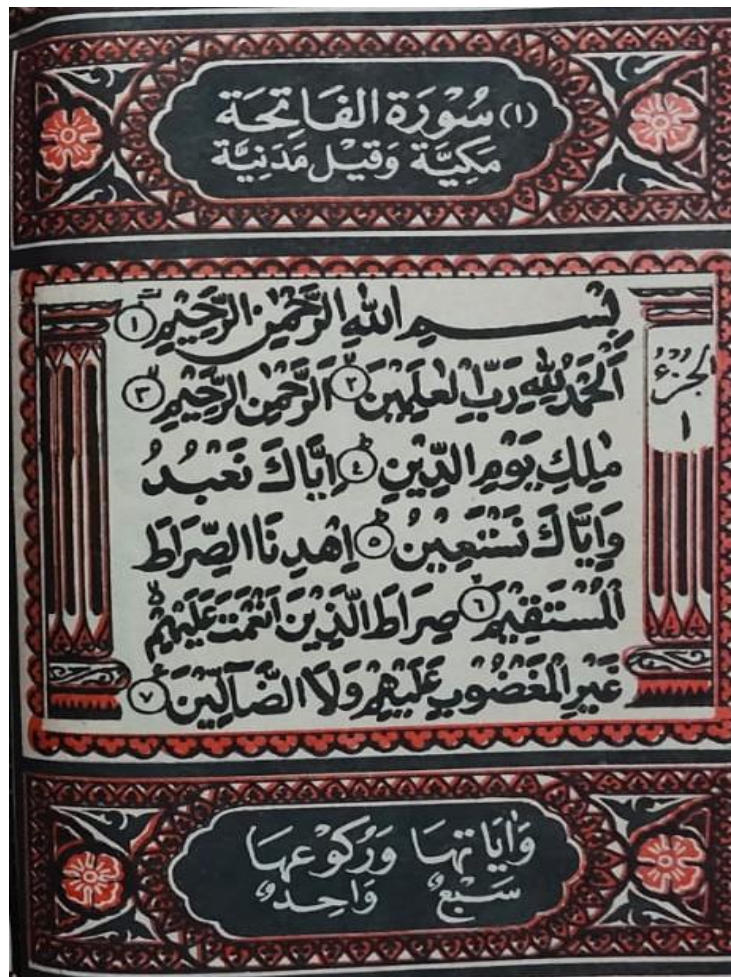 (١) سُوْرَةُ الفَاتِحَة
مَكِيَّة وَقِيْل مَدَنِيَّة
بِسْــــمِ اللهِ الرَّحْمٰنِ الرَّحِيْمِ ١
اَلْحَمْدُ لِلّٰهِ رَبِّ الْعٰلَمِيْنَ ٢ الرَّحْمٰنِ الرَّحِيْمِ ٣
الجُزْءُ
١
مٰلِكِ يَوْمِ الدِّيْنِ ٤ اِيَّاكَ نَعْبُدُ
وَاِيَّاكَ نَسْتَعِيْنُ ٥ اِهْدِنَا الصِّرَاطَ
الْمُسْتَقِيْمَ ٦ صِرَاطَ الَّذِيْنَ اَنْعَمْتَ عَلَيْهِمْ
غَيْرِ الْمَغْضُوْبِ عَلَيْهِمْ وَلَا الضَّآلِّيْنَ ٧
وَاٰيَاتهَا وَرُكُوْعهَا
سَبْعٌ وَاحِدٌ